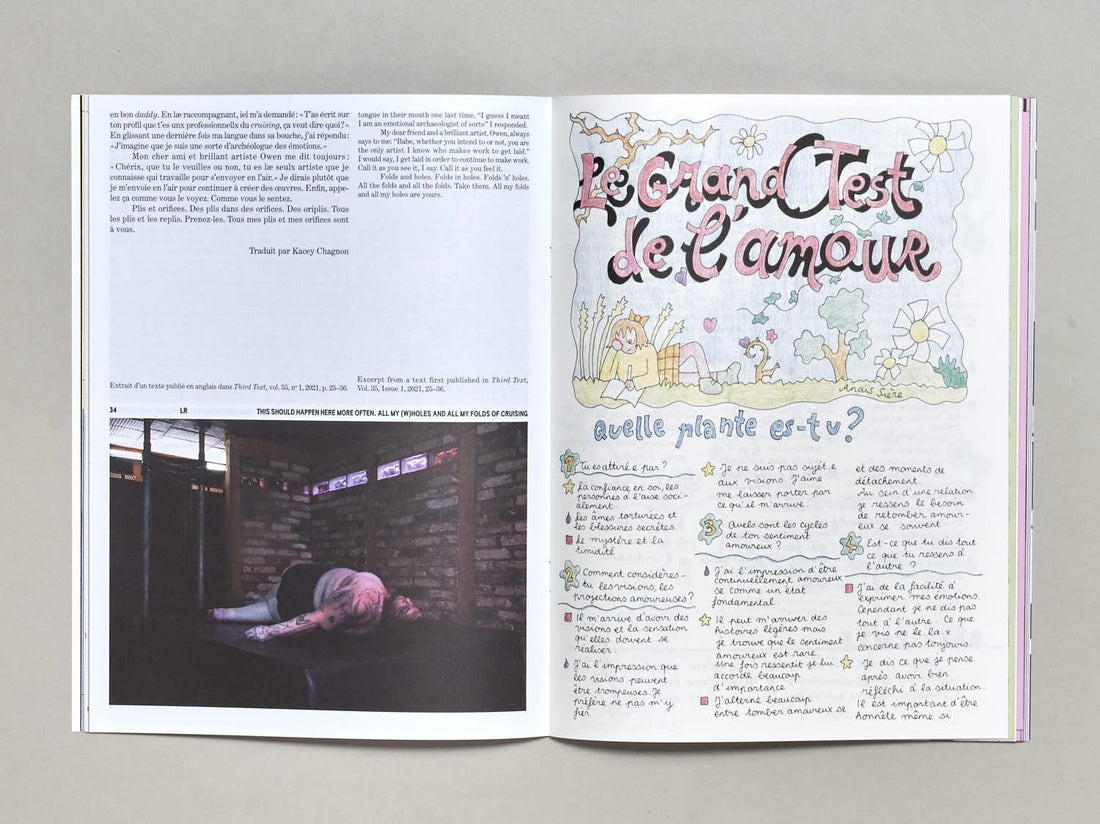 en bon daddy. En læ raccompagnant, iel m'a demandé : « T'as écrit sur
ton profil que t'es unx professionnellx du cruising, ça veut dire quoi ? »
En glissant une dernière fois ma langue dans sa bouche, j'ai répondu :
« J'imagine que je suis une sorte d'archéologue des émotions. »
Mon cher ami et brillant artiste Owen me dit toujours :
« Chérix, que tu le veuilles ou non, tu es læ seulx artiste que je
connaisse qui travaille pour s'envoyer en l'air. » Je dirais plutôt que
je m'envoie en l'air pour continuer à créer des œuvres. Enfin, appe-
lez ça comme vous le voyez. Comme vous le sentez.
Plis et orifices. Des plis dans des orifices. Des oriplis. Tous
les plis et les replis. Prenez-les. Tous mes plis et mes orifices sont
à vous.
Traduit par Kacey Chagnon
Extrait d'un texte publié en anglais dans Third Text, vol. 35, nº 1, 2021, p. 25–36.
tongue in their mouth one last time, “I guess I meant
I am an emotional archaeologist of sorts” I responded.
My dear friend and a brilliant artist, Owen, always
says to me: “Babe, whether you intend to or not, you are
the only artist I know who makes work to get laid.”
I would say, I get laid in order to continue to make work.
Call it as you see it, I say. Call it as you feel it.
Folds and holes. Folds in holes. Folds 'n' holes.
All the folds and all the folds. Take them. All my folds
and all my holes are yours.
Excerpt from a text first published in Third Text,
Vol. 35, Issue 1, 2021, 25–36.
34 LR THIS SHOULD HAPPEN HERE MORE OFTEN. ALL MY (W)HOLES AND ALL MY FOLDS OF CRUISING
Le Grand Test
de l'amour
Anaïs Sière
Quelle plante es-tu ?
1 Tu es attiré·e par ?
La confiance en soi, les
personnes à l'aise soci-
alement
Les âmes torturées et
les blessures secrètes.
Le mystère et la
timidité
2 Comment considères-
tu les visions, les
projections amoureuses ?
Il m'arrive d'avoir des
visions et la sensation
qu'elles doivent se
réaliser.
J'ai l'impression que
les visions peuvent
être trompeuses. Je
préfère ne pas m'y
fier
Je ne suis pas sujet·e
aux visions. J'aime
me laisser porter par
ce qu'il m'arrive.
3 Quels sont les cycles
de ton sentiment
amoureux ?
J'ai l'impression d'être
continuellement amoureux·
se comme un état
fondamental.
Il peut m'arriver des
histoires légères mais
je trouve que le sentiment
amoureux est rare.
Une fois ressentit je lui
accorde beaucoup
d'importance
J'alterne beaucoup
entre tomber amoureux·se
et des moments de
détachement.
Au sein d'une relation
je ressens le besoin
de retomber amour-
eux·se souvent.
4 Est-ce que tu dis tout
ce que tu ressens à
l'autre ?
J'ai de la facilité à
exprimer mes émotions.
Cependant je ne dis pas
tout à l'autre. Ce que
je vis ne le·la·x
concerne pas toujours.
Je dis ce que je pense
après avoir bien
réfléchi à la situation.
Il est important d'être
honnête même si